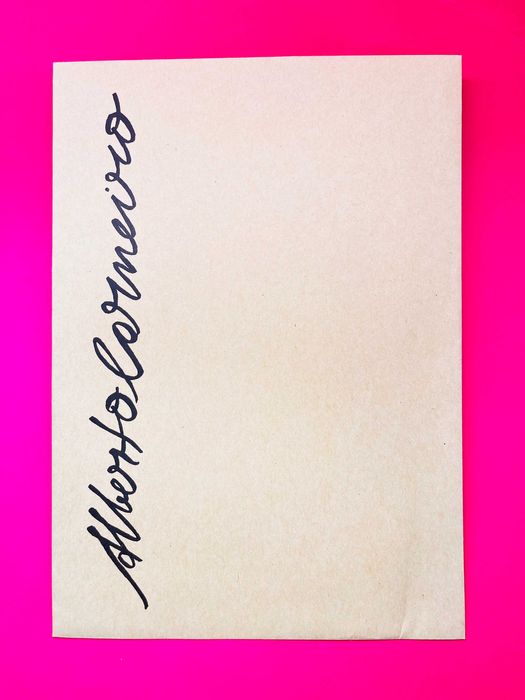 Alberto Carneiro